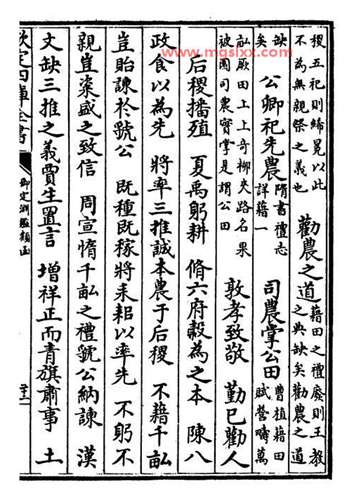 www.mgslxx.com
稷五祀則絺冕以此
不為無親祭之義也
勸農之道
藉田之禮廢則王教
之典缺矣勸農之道
缺
矣
公卿祀先農
隋書禮志
詳藉一
司農掌公田
曹植藉田
賦營疇萬
畝厥田上上奇柳夾路名果
被園司農實掌是謂公田
敦孝致敬 勤已勸人
后稷播殖 夏禹躬耕 脩六府穀為之本 陳八
政食以為先 將率三推誠本農于后稷 不藉千畝
豈貽諫於虢公 既種既稼將耒耜以率先 不躬不
親豈粢盛之致信 周宣惰千畝之禮虢公納諫 漢
文缺三推之義賈生置言 增祥正而青旗肅事 土
欽定四庫全書
御定淵鑑類函